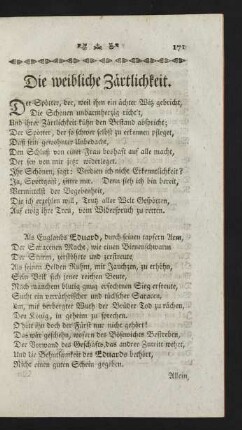 171
Die weibliche Zärtlichkeit.
Der Spötter, der, weil ihm ein ächter Witz gebricht,
Die Schönen unbarmherzig richt't,
Und ihrer Zärtlichkeit kühn den Bestand abspricht;
Der Spötter, der so schwer selbst zu erkennen pfleget,
Daß sein gewohnter Unbedacht,
Den Schluß von einer Frau boshaft auf alle macht,
Der sey von mir jetzt widerleget.
Ihr Schönen, sagt: Verdien ich nicht Erkenntlichkeit?
Ja, Spottgeist, zittre nur. Denn sieh ich bin bereit,
Vermittelst der Begebenheit,
Die ich erzählen will, Trutz aller Welt Gespötten,
Auf ewig ihre Treu, vom Widerspruch zu retten.
Als Englands Eduard, durch seinen tapfern Arm,
Der Saracenen Macht, wie einen Bienenschwarm
Der Sturm, zerstöhrte und zerstreute
Als seinen Helden Ruhm, mit Jauchzen, zu erhöhn,
Sein Volk sich jener reichen Beute,
Nach manchem blutig gnug erfochtnen Sieg erfreute,
Sucht ein verrätherischer und tückscher Saracen,
Aus, mit verborgner Wuth der Brüder Tod zu rächen,
Den König, in geheim zu sprechen.
O hätt ihn doch der Fürst nur nicht gehört!
Das war geschehn, wofern des Bösewichts Bestreben,
Der Vorwand des Geschäfts, das andrer Zutritt wehret,
Und die Behutsamkeit des Eduards bethört,
Nicht einen guten Schein gegeben.
Allein,